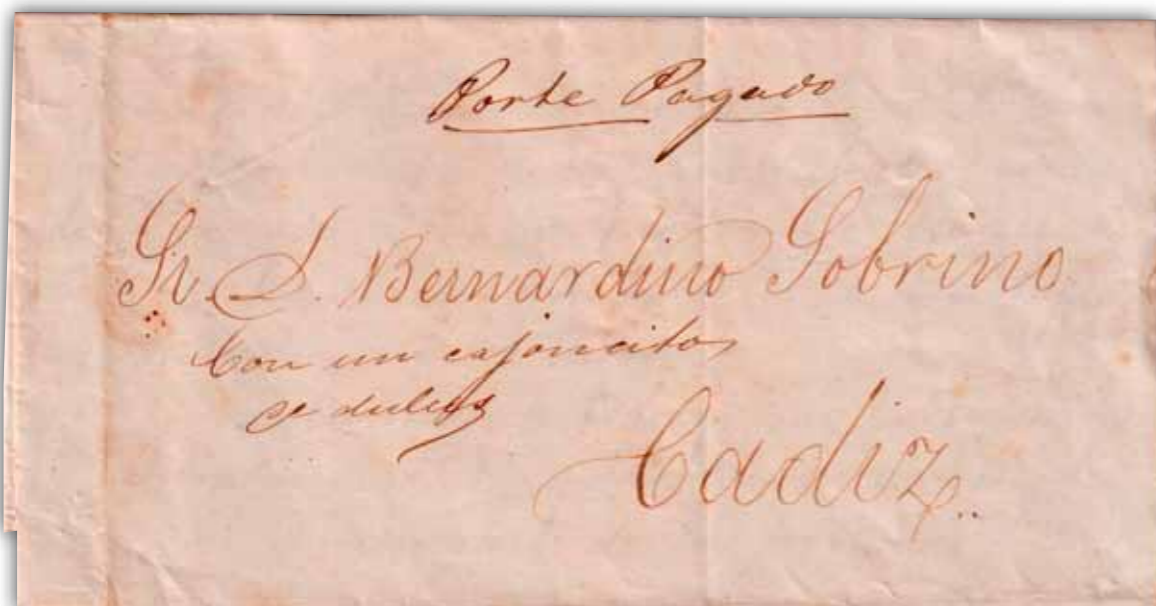 Porte Pagado
Sr. D. Bernardino Sobrino
Con un cajoncito
de dulces
Cadiz..